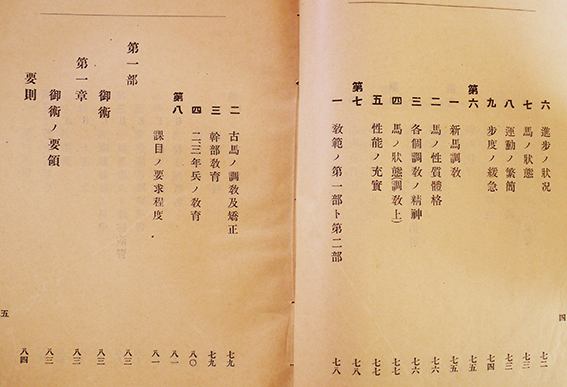 六 進步ノ狀況 七二
七 馬ノ狀態 七三
八 運動ノ繁簡 七三
九 步度ノ緩急 七四
第六 七五
一 新馬調敎 七五
二 馬ノ性質體格 七六
三 各個調敎ノ精神 七六
四 馬ノ狀態(調敎上) 七七
五 性能ノ充實 七七
第七 七八
一 敎範ノ第一部ト第二部 七八
四
二 古馬ノ調敎及矯正 七九
三 幹部敎育 七九
四 二、三年兵ノ敎育 八〇
第八 八一
課目ノ要求程度 八一
第一部
御術 八三
第一章 八三
御術ノ要領 八三
要則 八四
五